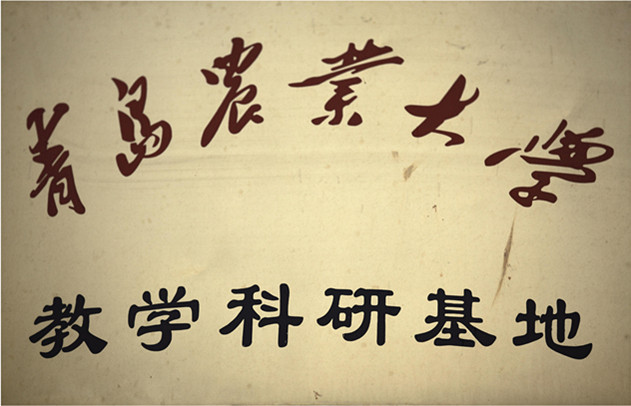 青岛農業大学
教学科研基地